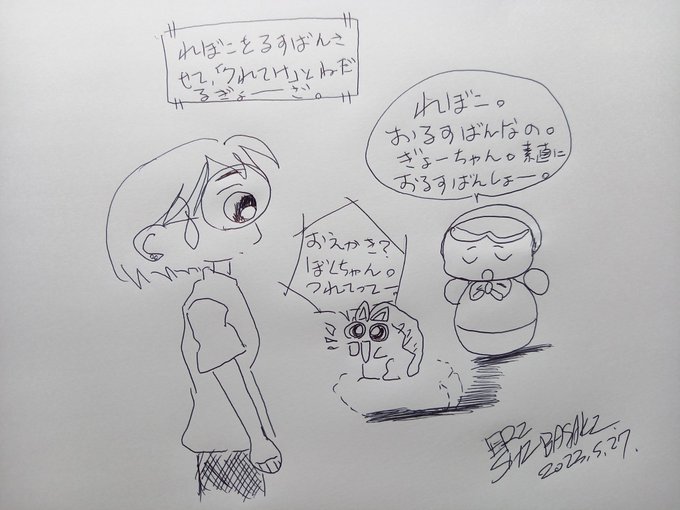 れぼこをるすばんさ
せて、「つれてけ」とねだ
るぎょーざ。
れぼこ。
おるすばんなの。
ぎょーちゃん。素直に
おるすばんしよー。
おえかき？
ぼくちゃん。
つれてってー。
BASAKI
2023.5.27.